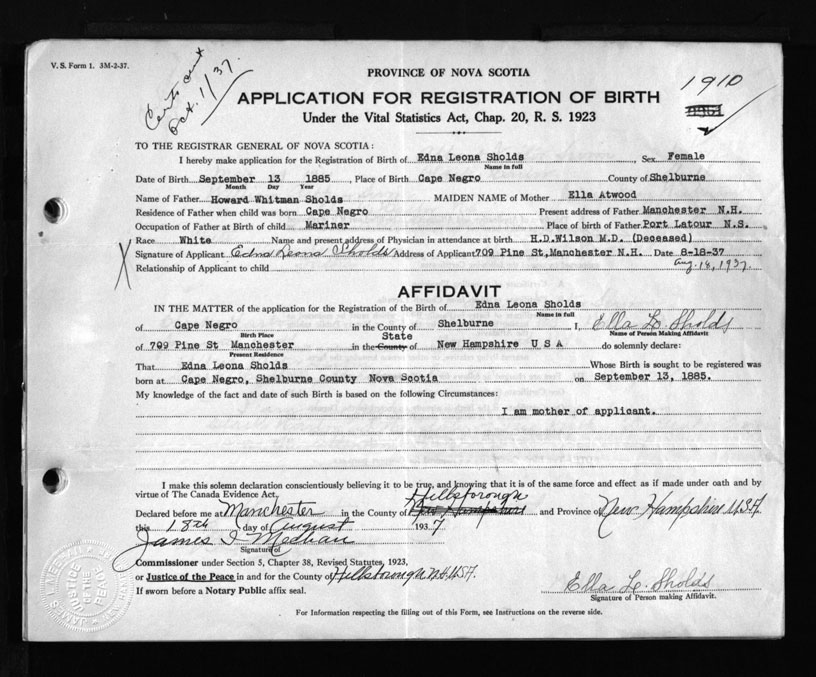 V. S. Form 1. 3M-2-37.
Certs sent
Oct. 1/37.
1910
PROVINCE OF NOVA SCOTIA
APPLICATION FOR REGISTRATION OF BIRTH
Under the Vital Statistics Act, Chap. 20, R. S. 1923
TO THE REGISTRAR GENERAL OF NOVA SCOTIA:
I hereby make application for the Registration of Birth of Edna Leona Sholds, Sex Female
Name in full
Date of Birth September 13 1885 Place of Birth Cape Negro County of Shelburne
Month Day Year
Name of Father Howard Whitman Sholds MAIDEN NAME of Mother Ella Atwood
Residence of Father when child was born Cape Negro Present address of Father Manchester N.H.
Occupation of Father at Birth of child Mariner Place of birth of Father Port Latour N.S.
Race White Name and present address of Physician in attendance at birth H.D.Wilson M.D. (Deceased)
Signature of Applicant Edna Leona Sholds Address of Applicant 709 Pine St, Manchester N.H. Date 8-18-37
Relationship of Applicant to child Aug. 18, 1937.
AFFIDAVIT
IN THE MATTER of the application for the Registration of the Birth of Edna Leona Sholds
Name in full
of Cape Negro in the County of Shelburne I, Ella L. Sholds
Birth Place Name of Person Making Affidavit
State
of 709 Pine St Manchester in the County of New Hampshire U S A do solemnly declare:
Present Residence
That Edna Leona Sholds Whose Birth is sought to be registered was
born at Cape Negro, Shelburne County Nova Scotia on September 13, 1885.
My knowledge of the fact and date of such Birth is based on the following Circumstances:
I am mother of applicant.
I make this solemn declaration conscientiously believing it to be true, and knowing that it is of the same force and effect as if made under oath and by
virtue of The Canada Evidence Act.
Hillsborough
Declared before me at Manchester in the County of New Hampshire and Province of New Hampshire U.S.A.
this 18th day of August 1937
James I. Meehan
Signature of
Commissioner under Section 5, Chapter 38, Revised Statutes, 1923,
or Justice of the Peace in and for the County of Hillsborough N.H. U.S.A.
If sworn before a Notary Public affix seal.
Ella L. Sholds
Signature of Person making Affidavit.
For Information respecting the filling out of this Form, see Instructions on the reverse side.
JUSTICE
OF THE
PEACE